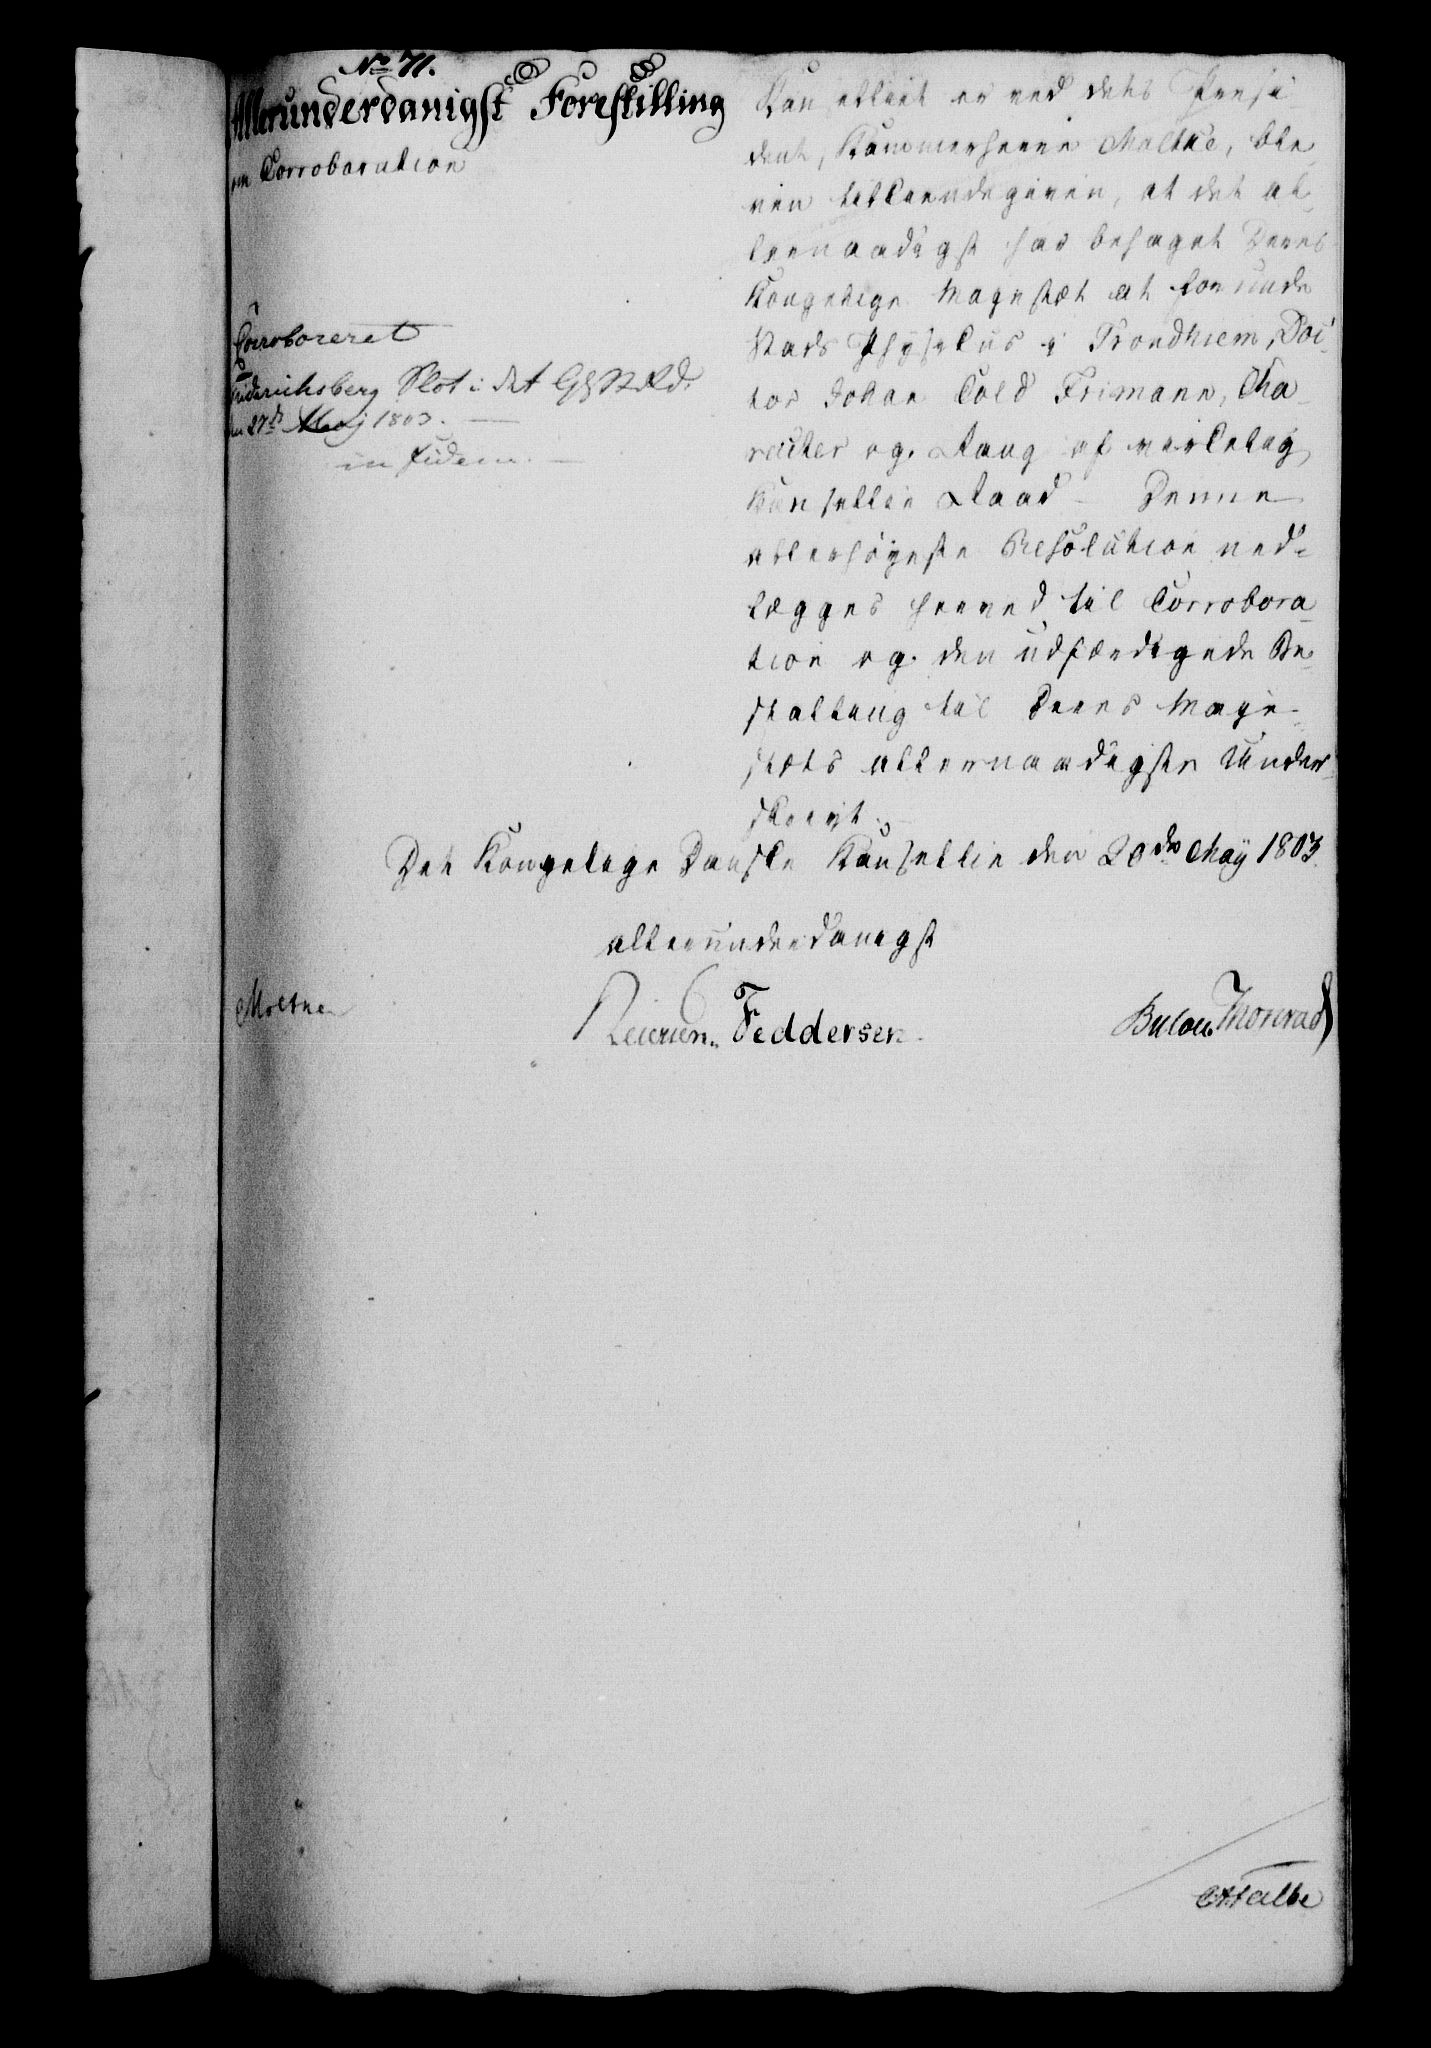 No 71.
Allerunderdanigst Forestilling
om Corroboration
Corroboreret
Friderichsberg Slot i det G&StRd.
den 27de Maj 1803.
in fidem.
Kanselliet er ved dets Præsi-
dent, Kammerherre Moltke, ble-
ven tilkiendegiven, at det al-
lernaadigst har behaget Deres
Kongelige Majestæt at forunde
Stads Physikus i Trondhiem, Doc-
tor Johan Cold Frimann, Cha-
racter og Rang af virkelig
Kansellie Raad. Denne
allerhøyeste Resolution ned-
lægges herved til Corrobora-
tion og den udfærdigede Be-
stalling til Deres Maje-
stæts allernaadigste Under-
skrivt.
Det Kongelige Danske Kansellie den 20de May 1803.
allerunderdanigst
Moltke
Feddersen.
Bülow. Monrad